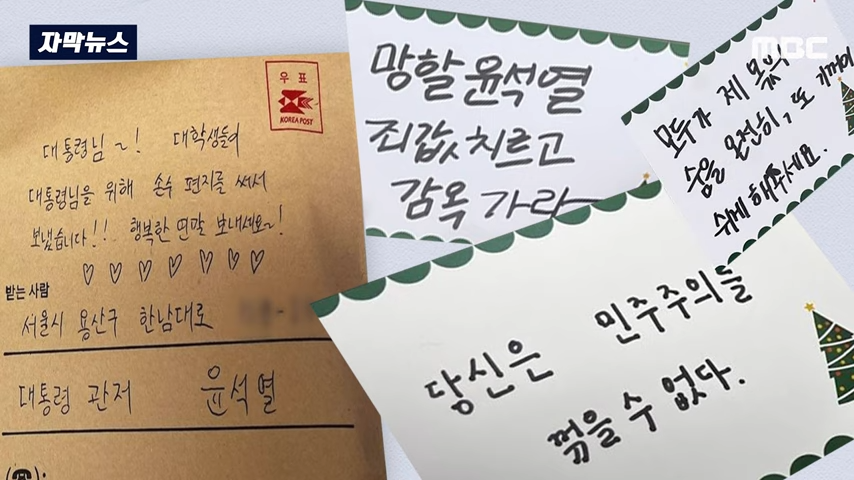 자막뉴스
MBC
우표
KOREA POST
대통령님~! 대학생들이
대통령님을 위해 손수 편지를 써서
보냈습니다!!! 행복한 연말 보내세요~!
♡ ♡ ♡ ♡ ♡ ♡ ♡
받는 사람
서울시 용산구 한남대로
대통령 관저 윤석열
(☎):
망할 윤석열
죄값 치르고
감옥 가라—
모두가 제 몫의
숨을 온전히, 또 기꺼이
쉬게 해주세요.
당신은 민주주의를
꺾을 수 없다.